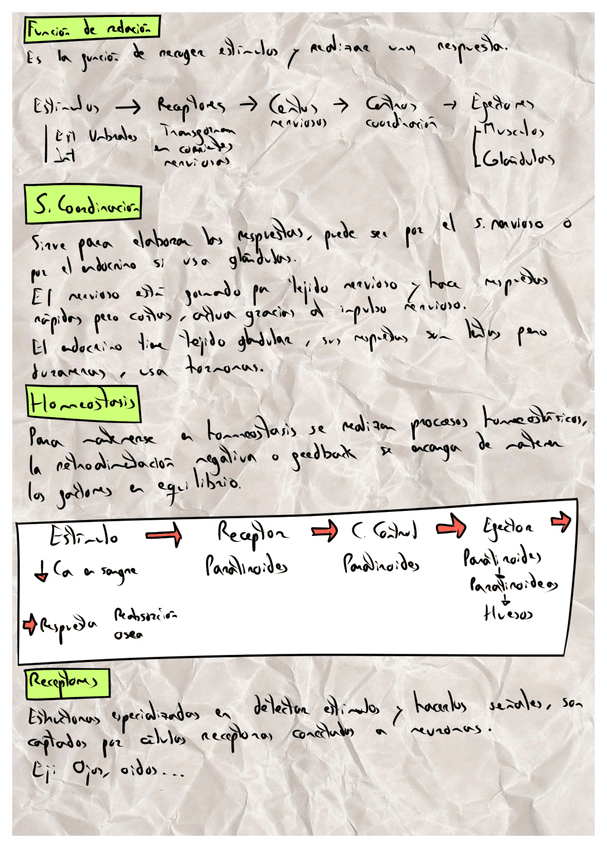 Función de relación
Es la función de recoger estímulos y realizar una respuesta.
Estímulos → Receptores → Centros → Centros → Efectores
nerviosos coordinación
Ext Umbrales Transforman Musculos
Int en corrientes Glándulas
nerviosas
S. Coordinación
Sirve para elaborar las respuestas, puede ser por el S. nervioso o
por el endocrino si usa glándulas.
El nervioso está formado por tejido nervioso y hace respuestas
rápidas pero cortas, actua gracias al impulso nervioso.
El endocrino tiene tejido glandular, sus respuestas son lentas pero
duraderas, usa hormonas.
Homeostasis
Para mantenerse en homeostasis se realizan procesos homeostásicos,
la retroalimentación negativa o feedback se encarga de mantener
los factores en equilibrio.
Estímulo → Receptor → C. Control → Efector →
↓ Ca en sangre Paratiroides Paratiroides Paratiroides
↓
Paratiroideas
↓
Huesos
→ Respuesta Reabsorción
osea
Receptores
Estructuras especializadas en detectar estímulos y hacerlos señales, son
captados por células receptoras conectadas a neuronas.
Ej: Ojos, oidos...